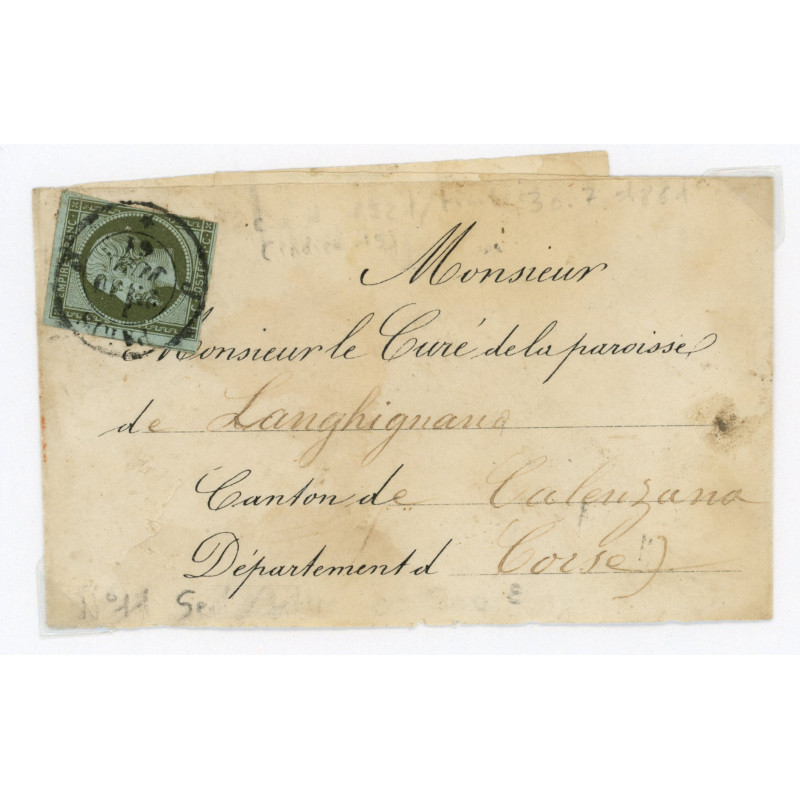 30.7.1861
EMPIRE FRANC
POSTE
PARIS
30
JUIL
61
Monsieur
Monsieur le Curé de la paroisse
de Langhignana
Canton de Calenzana
Département d Corse
N°11